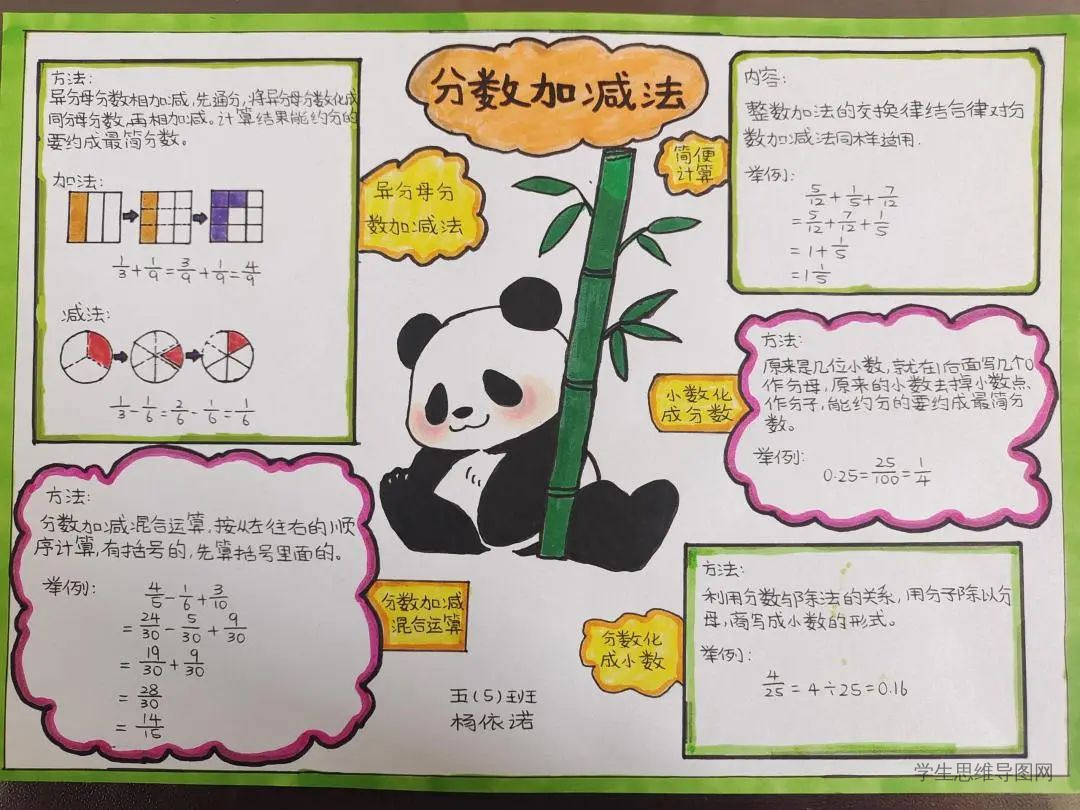 分数加减法
方法:
异分母分数相加减,先通分,将异分母分数化成
同母分数,再相加减。计算结果能约分的
要约成最简分数。
加法:
1/3+1/9=3/9+1/9=4/9
减法:
1/3-1/6=2/6-1/6=1/6
异分母分
数加减法
简便
计算
内容:
整数加法的交换律结合律对分
数加减法同样适用.
举例:
5/12+1/5+7/12
=5/12+7/12+1/5
=1+1/5
=1 1/5
小数化
成分数
方法:
原来是几位小数,就在1后面写几个0
作分母,原来的小数去掉小数点
作分子,能约分的要约成最简分
数。
举例:
0.25=25/100=1/4
方法:
分数加减混合运算,按从左往右的顺
序计算,有括号的,先算括号里面的。
举例:
4/5-1/6+3/10
=24/30-5/30+9/30
=19/30+9/30
=28/30
=14/15
分数加减
混合运算
分数化
成小数
方法:
利用分数与除法的关系,用分子除以分
母,商写成小数的形式。
举例:
4/25=4÷25=0.16
五(5)班
杨依诺
学生思维导图网